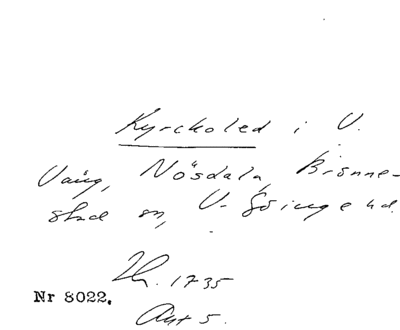 Kyrckoled i V.
Vång, Nösdala, Brönne-
stad sn, V. Göinge hd.
Lr. 1735
Akt 5.
Nr 8022.